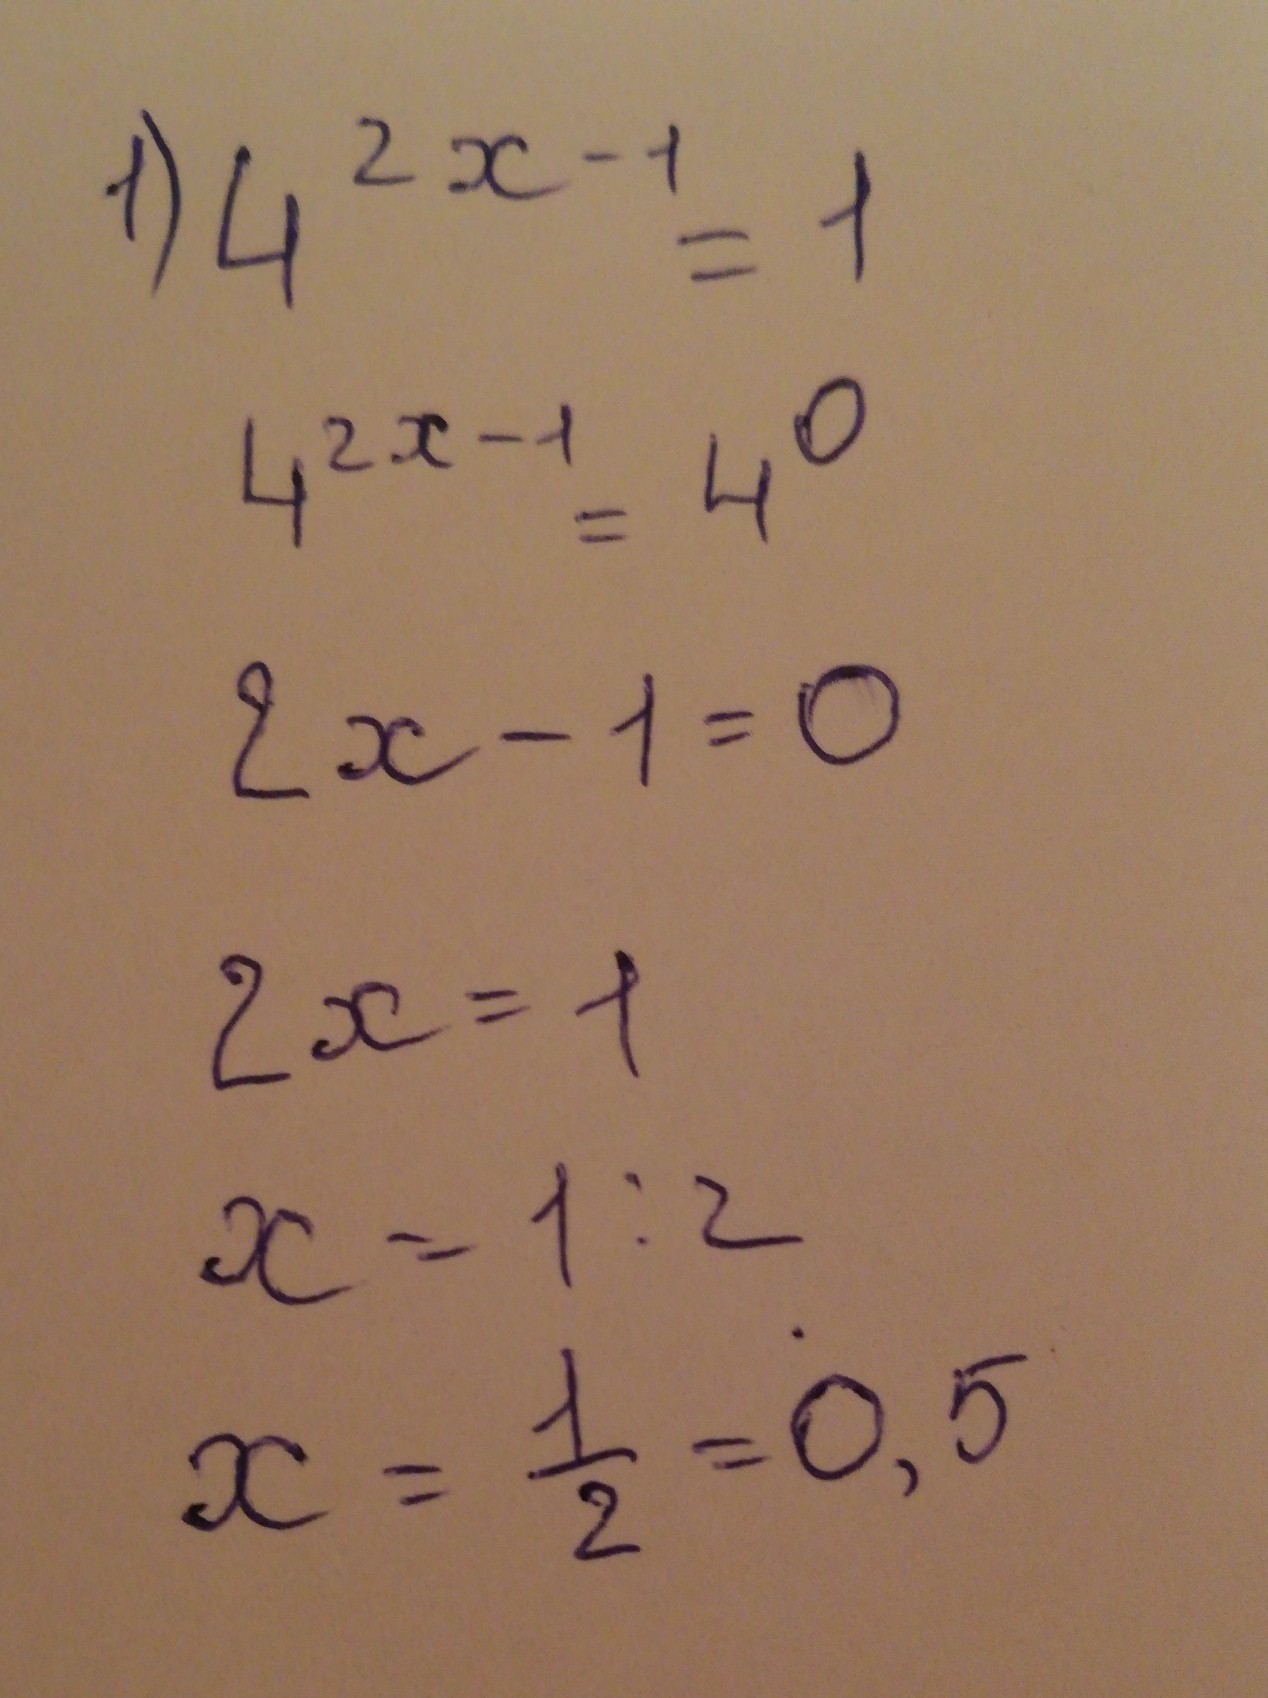 1) 4^{2x-1} = 1
4^{2x-1} = 4^0
2x - 1 = 0
2x = 1
x = 1 : 2
x = 1/2 = 0,5